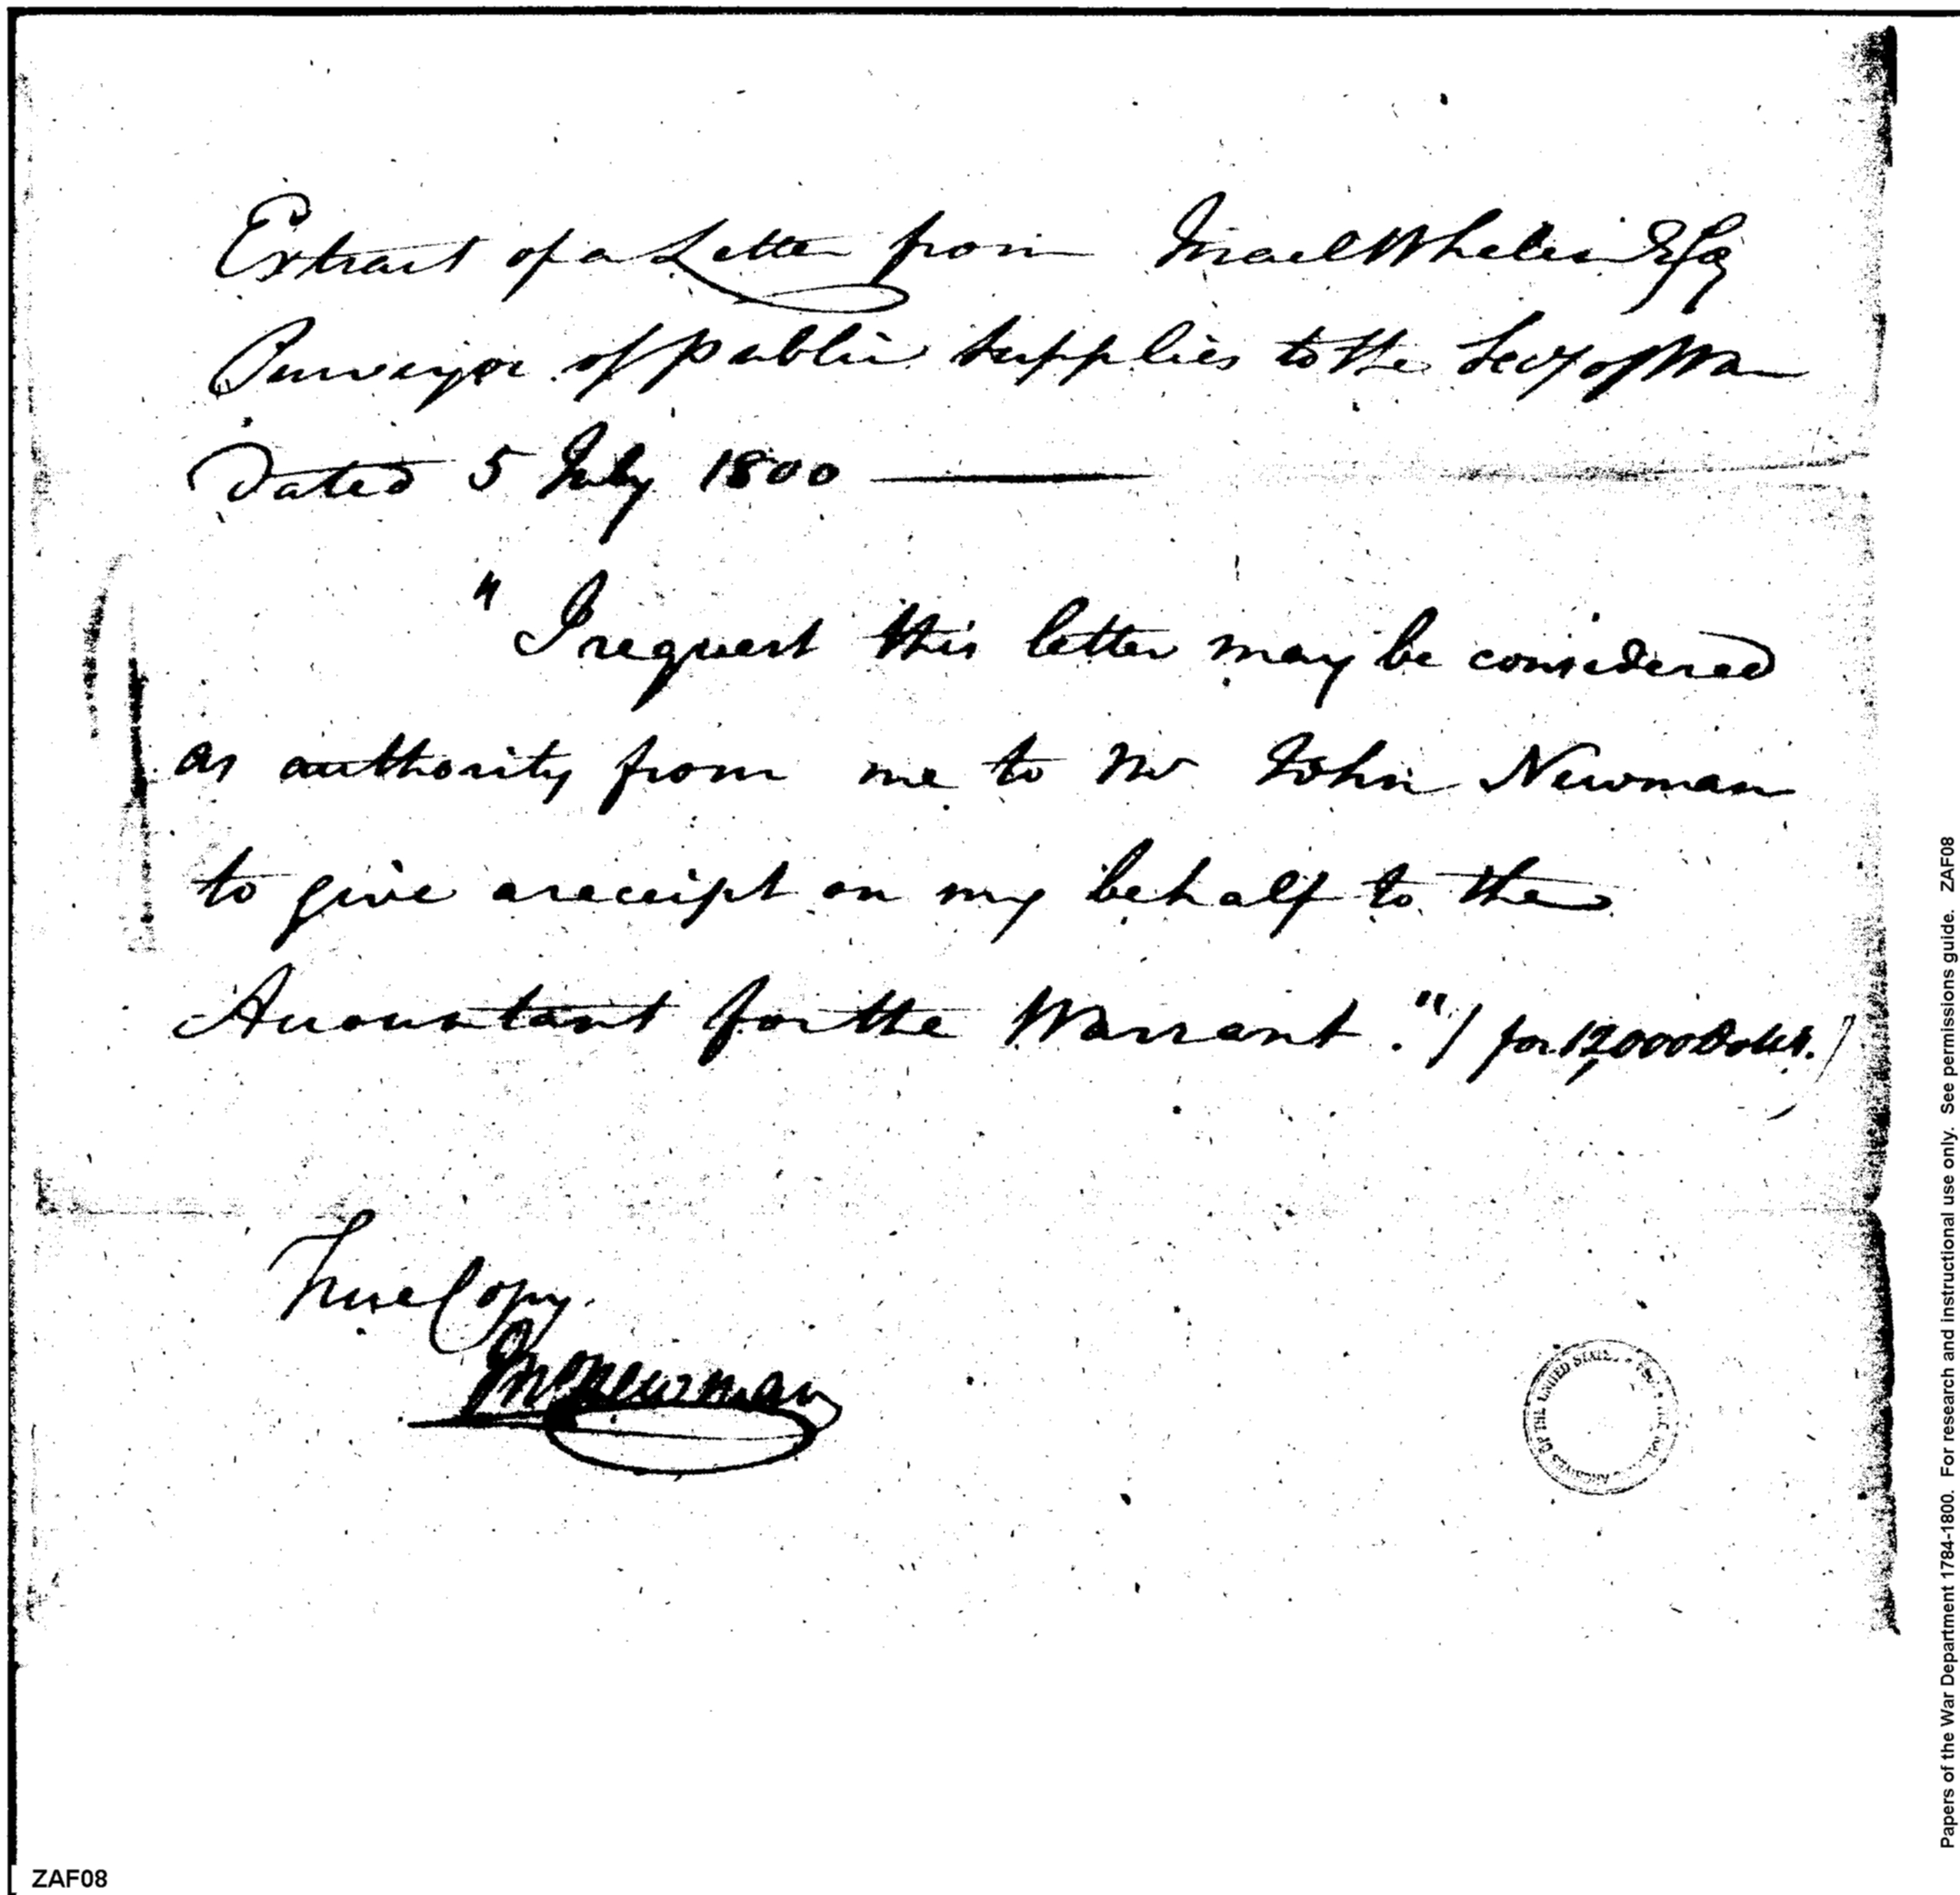 Extract of a Letter from Israel Whelen Esqr
Purveyor of public Supplies to the Secy of War
Dated 5 July 1800
" I request this letter may be considered
as authority from me to Mr John Newman
to give a receipt on my behalf to the
Accountant for the Warrant." / for 12,000 Dollrs. /
True Copy
Jno Newman
OF THE UNITED STATES
Papers of the War Department 1784-1800. For research and instructional use only. See permissions guide. ZAF08
ZAF08